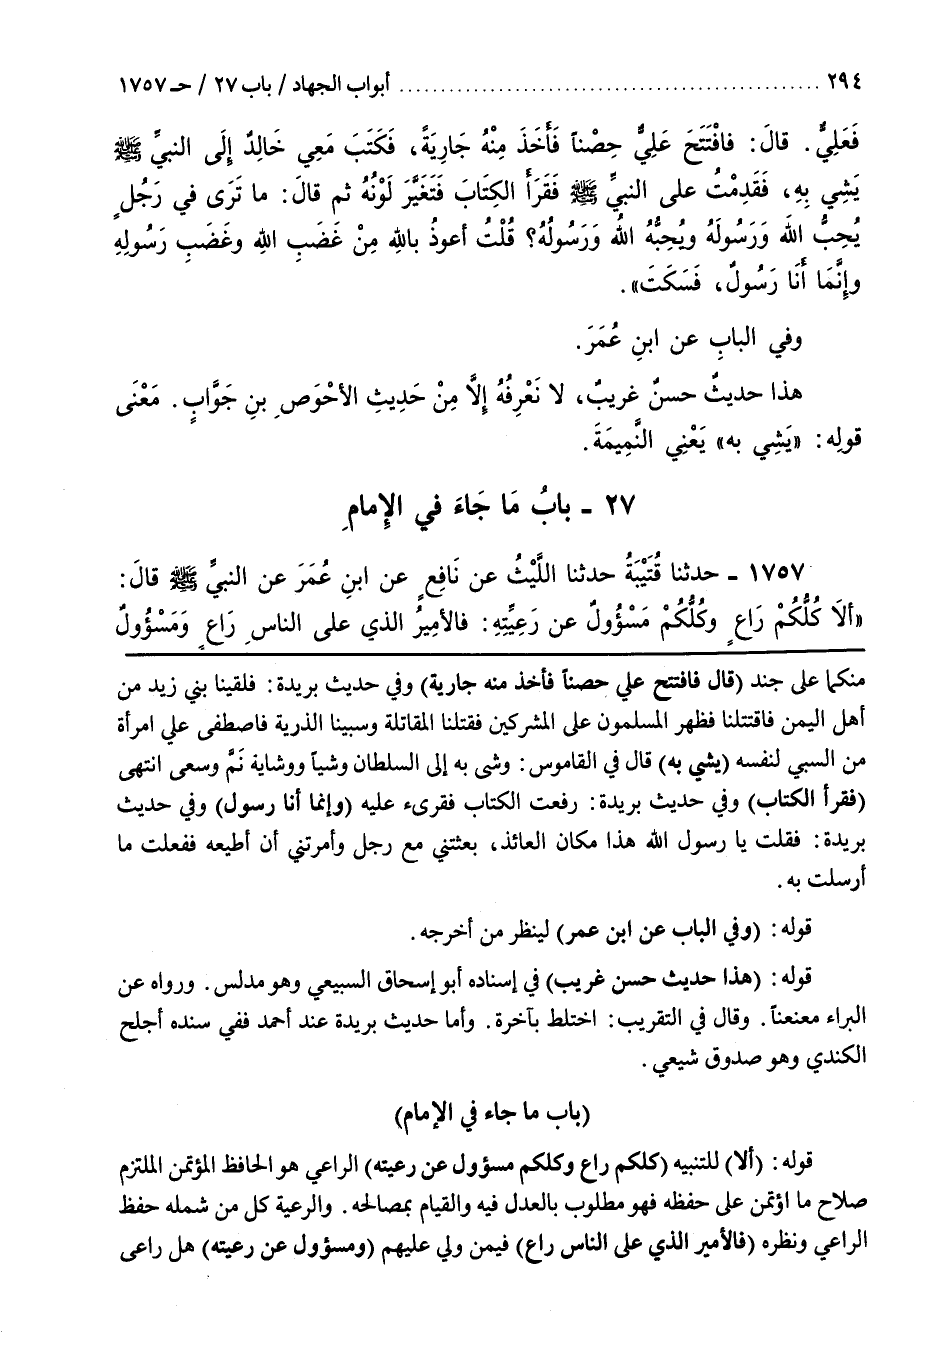 ٢٩٤ ........................................ أبواب الجهاد / باب ٢٧ / حـ ١٧٥٧
فَعَلِيٌّ. قالَ: فافْتَتَحَ عَلِيٌّ حِصْناً فَأَخَذَ مِنْهُ جَارِيَةً، فَكَتَبَ مَعِي خَالِدٌ إِلَى النبيِّ ﷺ
يَشِي بِهِ، فَقَدِمْتُ على النبيِّ ﷺ فَقَرَأَ الكِتَابَ فَتَغَيَّرَ لَوْنُهُ ثم قالَ: ما تَرَى في رَجُلٍ
يُحِبُّ الله وَرَسُولَهُ ويُحِبُّهُ الله وَرَسُولُهُ؟ قُلْتُ أعوذُ باللهِ مِنْ غَضَبِ اللهِ وغَضَبِ رَسُولِهِ
وإِنَّمَا أَنَا رَسُولٌ، فَسَكَتَ».
وفي البابِ عن ابنِ عُمَرَ.
هذا حديثٌ حسنٌ غريبٌ، لا نَعْرِفُهُ إلَّا مِنْ حَدِيثِ الأحْوَصِ بنِ جَوَّابٍ. مَعْنَى
قولِه: «يَشِي به» يَعْنِي النَّمِيمَةَ.
٢٧ - بابُ مَا جَاءَ في الإِمامِ
١٧٥٧ - حدثنا قُتَيْبَةُ حدثنا اللَّيْثُ عن نَافِعٍ عن ابنِ عُمَرَ عن النبيِّ ﷺ قالَ:
«ألاَ كُلُّكُمْ رَاعٍ وكُلُّكُمْ مَسْؤُولٌ عن رَعِيَّتِهِ: فالأميرُ الذي على الناسِ رَاعٍ وَمَسْؤُولٌ
منكما على جند (قال فافتتح علي حصناً فأخذ منه جارية) وفي حديث بريدة: فلقينا بني زيد من
أهل اليمن فاقتتلنا فظهر المسلمون على المشركين فقتلنا المقاتلة وسبينا الذرية فاصطفى علي امرأة
من السبي لنفسه (يشي به) قال في القاموس: وشى به إلى السلطان وشياً ووشاية نَمَّ وسعى انتهى
(فقرأ الكتاب) وفي حديث بريدة: رفعت الكتاب فقرىء عليه (وإنما أنا رسول) وفي حديث
بريدة: فقلت يا رسول الله هذا مكان العائذ، بعثتني مع رجل وأمرتني أن أطيعه ففعلت ما
أرسلت به.
قوله: (وفي الباب عن ابن عمر) لينظر من أخرجه.
قوله: (هذا حديث حسن غريب) في إسناده أبو إسحاق السبيعي وهو مدلس. ورواه عن
البراء معنعناً. وقال في التقريب: اختلط بآخرة. وأما حديث بريدة عند أحمد ففي سنده أجلح
الكندي وهو صدوق شيعي.
(باب ما جاء في الإمام)
قوله: (ألا) للتنبيه (كلكم راع وكلكم مسؤول عن رعيته) الراعي هو الحافظ المؤتمن الملتزم
صلاح ما اؤتمن على حفظه فهو مطلوب بالعدل فيه والقيام بمصالحه. والرعية كل من شمله حفظ
الراعي ونظره (فالأمير الذي على الناس راع) فيمن ولي عليهم (ومسؤول عن رعيته) هل راعى